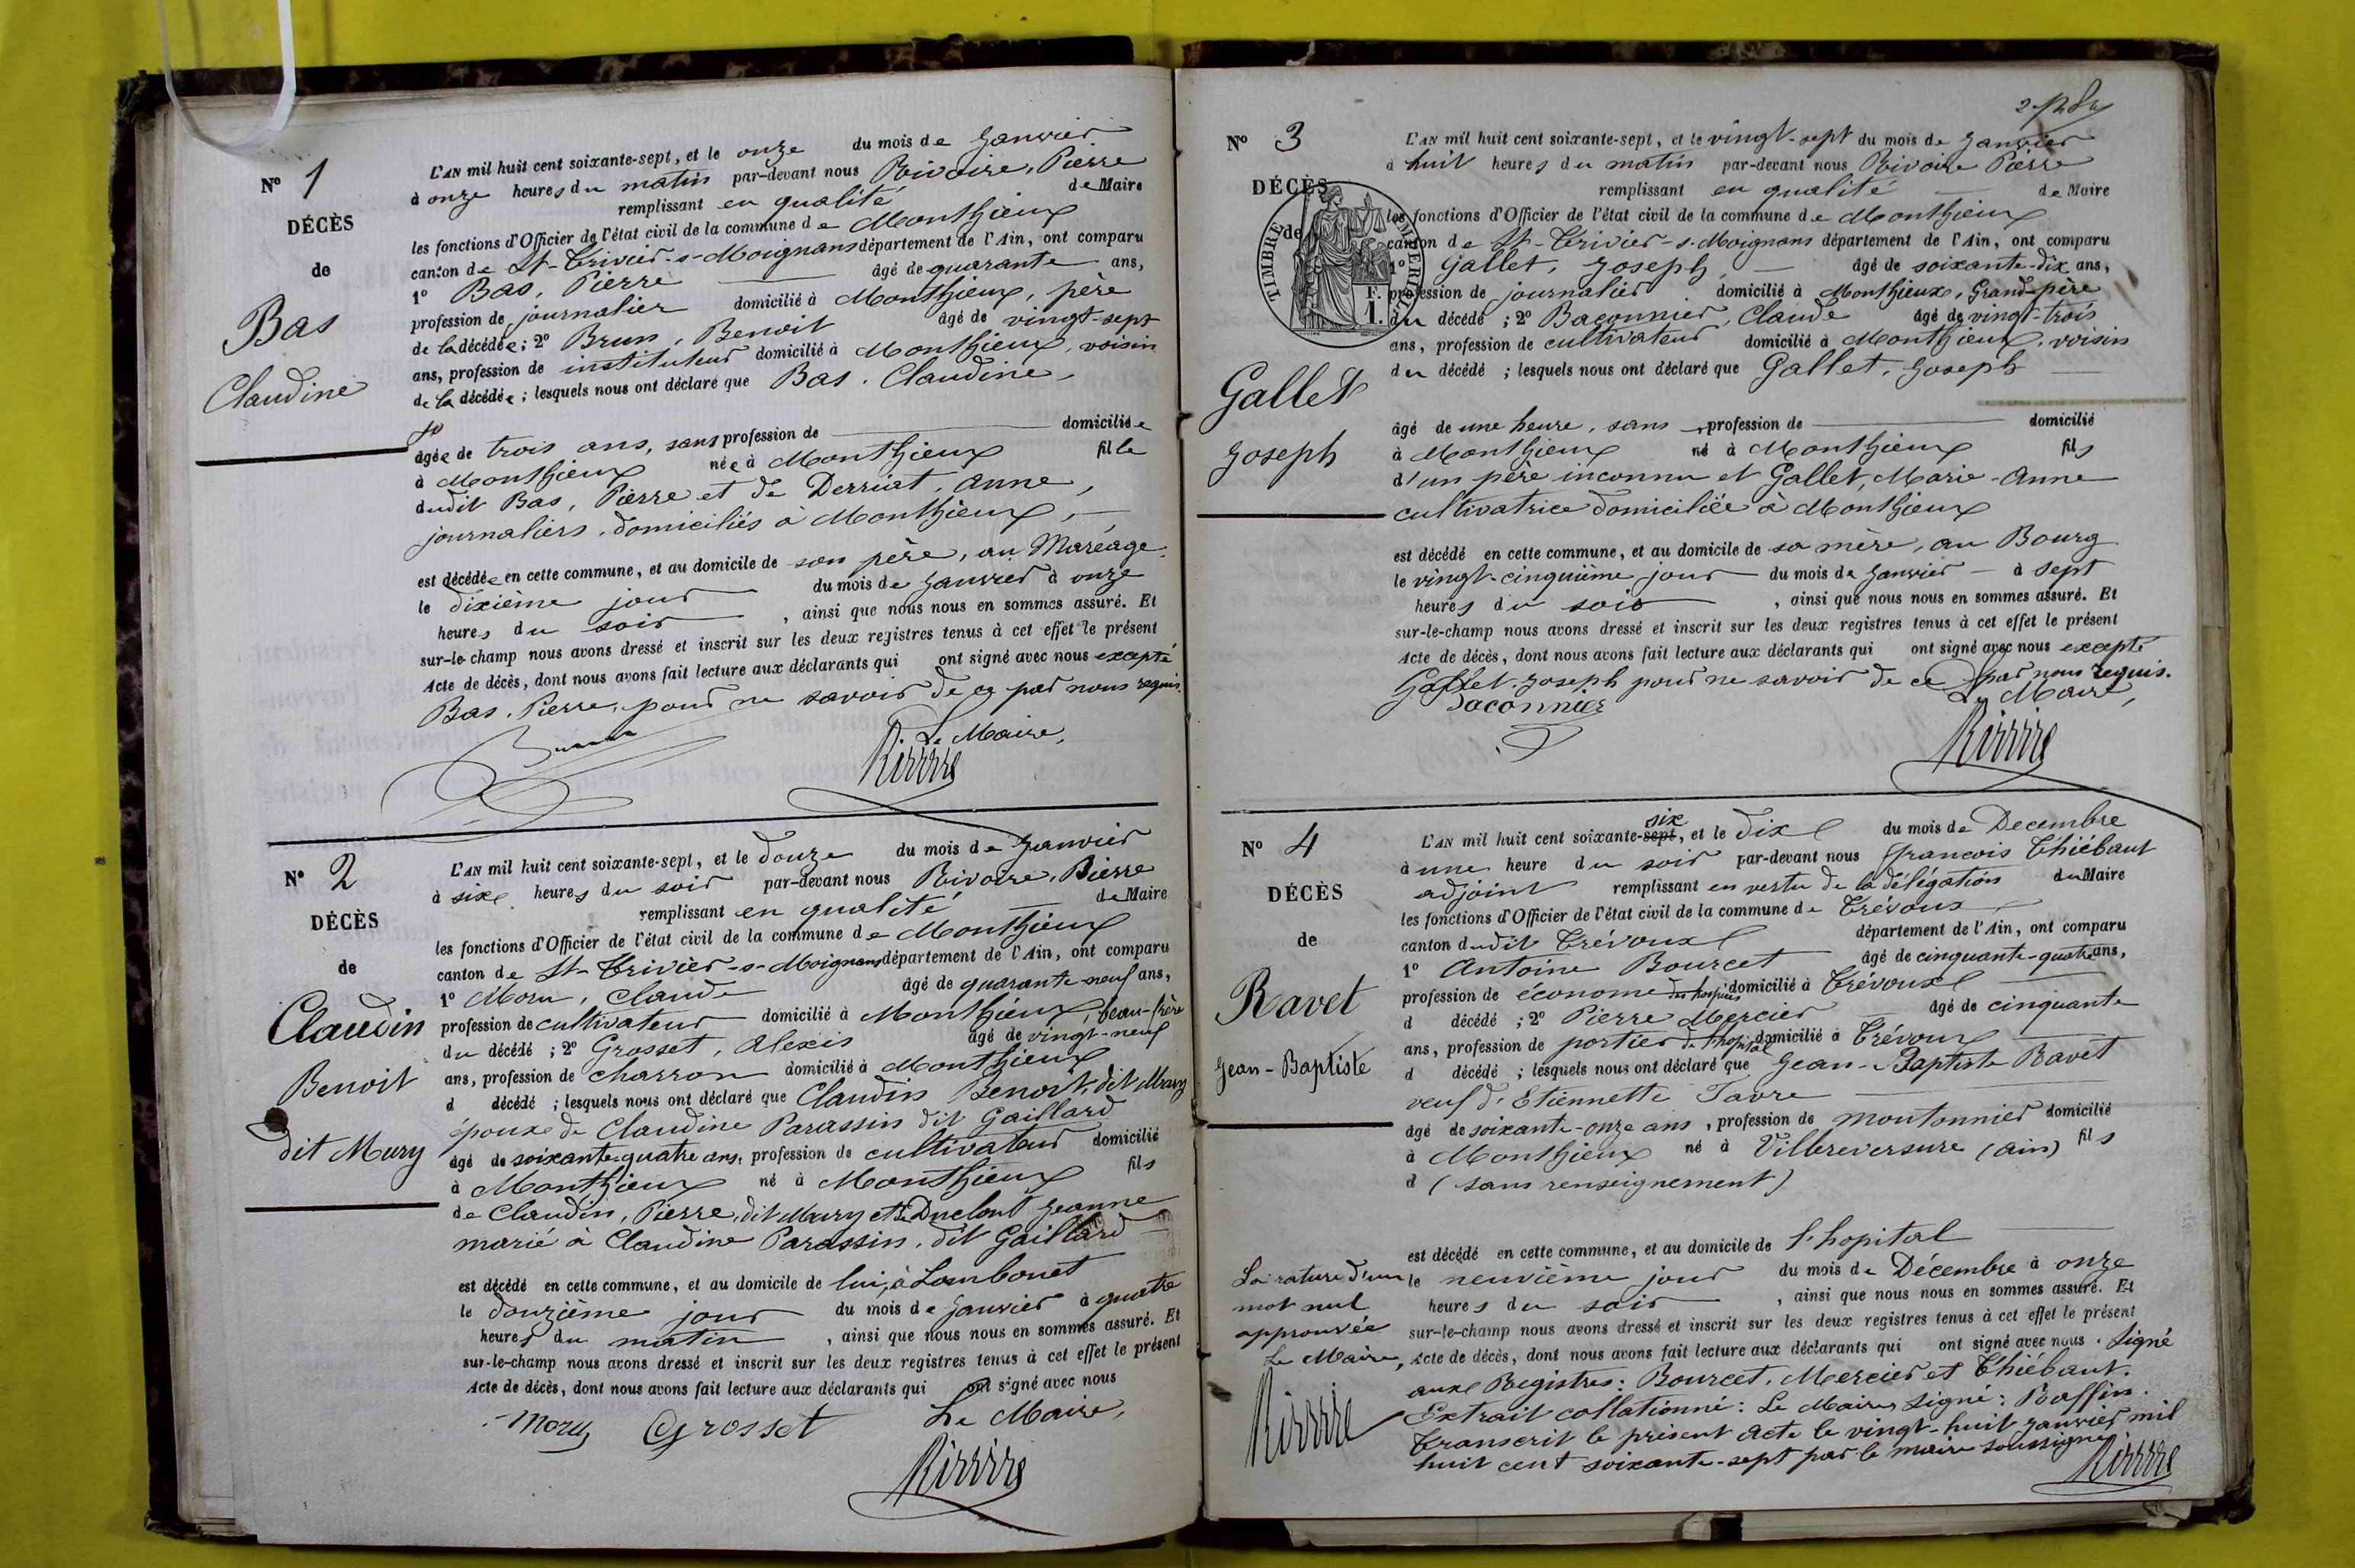 N° 1
DÉCÈS
de
Bas
Claudine
L'AN mil huit cent soixante-sept, et le onze du mois de Janvier
à onze heures du matin par-devant nous Rivoire, Pierre
remplissant en qualité de Maire
les fonctions d'Officier de l'état civil de la commune de Monthieux
canton de St-Trivier-s-Moignans département de l'Ain, ont comparu
1° Bas, Pierre âgé de quarante ans,
profession de journalier domicilié à Monthieux, père
de la décédée ; 2° Brun, Benoit âgé de vingt-sept
ans, profession de instituteur domicilié à Monthieux, voisin
de la décédée ; lesquels nous ont déclaré que Bas, Claudine,
âgée de trois ans, sans profession de domiciliée
à Monthieux née à Monthieux fille
dudit Bas, Pierre et de Derriat, Anne,
journaliers, domiciliés à Monthieux,
est décédée en cette commune, et au domicile de son père, au Maréage.
le dixième jour du mois de Janvier à onze
heures du soir , ainsi que nous nous en sommes assuré. Et
sur-le-champ nous avons dressé et inscrit sur les deux registres tenus à cet effet le présent
Acte de décès, dont nous avons fait lecture aux déclarants qui ont signé avec nous excepté
Bas, Pierre, pour ne savoir de ce par nous requis.
Brun
Le Maire,
Rivoire
N° 2
DÉCÈS
de
Claudin
Benoit
dit Mury
L'AN mil huit cent soixante-sept, et le douze du mois de Janvier
à six heures du soir par-devant nous Rivoire, Pierre
remplissant en qualité de Maire
les fonctions d'Officier de l'état civil de la commune de Monthieux
canton de St-Trivier-s-Moignans département de l'Ain, ont comparu
1° Claude âgé de quarante-neuf ans,
profession de cultivateur domicilié à Monthieux, beau-frère
du décédé ; 2° Grosset, Alexis âgé de vingt-neuf
ans, profession de charron domicilié à Monthieux
d décédé ; lesquels nous ont déclaré que Claudin Benoit, dit Mury
époux de Claudine Parassin dit Gaillard
âgé de soixante-quatre ans, profession de cultivateur domicilié
à Monthieux né à Monthieux fils
de Claudin, Pierre, dit Mury et de Duclout Jeanne
marié à Claudine Parassin, dit Gaillard
est décédé en cette commune, et au domicile de lui, à Lombouet
le douzième jour du mois de Janvier à quatre
heures du matin , ainsi que nous nous en sommes assuré. Et
sur-le-champ nous avons dressé et inscrit sur les deux registres tenus à cet effet le présent
Acte de décès, dont nous avons fait lecture aux déclarants qui ont signé avec nous
Grosset Le Maire,
Rivoire
N° 3
DÉCÈS
de
TIMBRE IMPÉRIAL
Gallet
Joseph
L'AN mil huit cent soixante-sept, et le vingt-sept du mois de Janvier
à huit heures du matin par-devant nous Rivoire Pierre
remplissant en qualité de Maire
les fonctions d'Officier de l'état civil de la commune de Monthieux
canton de St-Trivier-s-Moignans département de l'Ain, ont comparu
1° Gallet, Joseph, âgé de soixante-dix ans,
profession de journalier domicilié à Monthieux, Grand-père
du décédé ; 2° Baconnier, Claude âgé de vingt-trois
ans, profession de cultivateur domicilié à Monthieux, voisin
du décédé ; lesquels nous ont déclaré que Gallet, Joseph
âgé de une heure, sans profession de domicilié
à Monthieux né à Monthieux fils
d'un père inconnu et Gallet, Marie-Anne
cultivatrice domiciliée à Monthieux
est décédé en cette commune, et au domicile de sa mère, au Bourg
le vingt-cinquième jour du mois de Janvier à sept
heures du soir , ainsi que nous nous en sommes assuré. Et
sur-le-champ nous avons dressé et inscrit sur les deux registres tenus à cet effet le présent
Acte de décès, dont nous avons fait lecture aux déclarants qui ont signé avec nous excepté
Gallet, Joseph pour ne savoir de ce par nous requis.
Baconnier Le Maire,
Rivoire
N° 4
DÉCÈS
de
Ravet
Jean-Baptiste
L'AN mil huit cent soixante-sept six, et le dix du mois de Decembre
à une heure du soir par-devant nous François Thiébaut
adjoint remplissant en vertu de la délégation du Maire
les fonctions d'Officier de l'état civil de la commune de Trévoux
canton dudit Trévoux département de l'Ain, ont comparu
1° Antoine Bourcet âgé de cinquante-quatre ans,
profession de économe des hospices domicilié à Trévoux
d décédé ; 2° Pierre Mercier âgé de cinquante
ans, profession de portier de l'hopital domicilié à Trévoux
d décédé ; lesquels nous ont déclaré que Jean-Baptiste Ravet
veuf d'Etiennette Favre
âgé de soixante-onze ans, profession de moutonnier domicilié
à Monthieux né à Villereversure (Ain) fils
d (sans renseignement)
est décédé en cette commune, et au domicile de l'hopital
le neuvième jour du mois de Décembre à onze
heures du soir , ainsi que nous nous en sommes assuré. Et
sur-le-champ nous avons dressé et inscrit sur les deux registres tenus à cet effet le présent
Acte de décès, dont nous avons fait lecture aux déclarants qui ont signé avec nous. Signé
aux Registres: Bourcet, Mercier et Thiébaut.
Extrait collationné: Le Maire, Signé: Raffin.
Transcrit le présent acte le vingt-huit janvier mil
huit cent soixante-sept par le maire soussigné
Rivoire
La rature d'un
mot nul
approuvée
Le Maire,
Rivoire